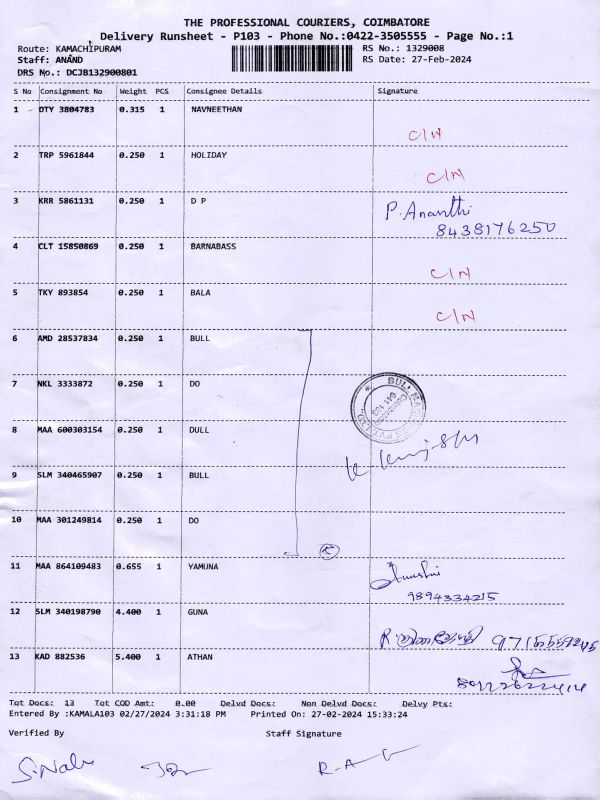 THE PROFESSIONAL COURIERS, COIMBATORE
Delivery Runsheet - P103 - Phone No.:0422-3505555 - Page No.:1
Route: KAMACHIPURAM RS No.: 1329008
Staff: ANAND RS Date: 27-Feb-2024
DRS No.: DCJB132900801
S No Consignment No Weight PCS Consignee Details Signature
1 DTY 3804783 0.315 1 NAVNEETHAN
C/N
2 TRP 5961844 0.250 1 HOLIDAY
C/N
3 KRR 5861131 0.250 1 D P P. Ananthi
8438176250
4 CLT 15850869 0.250 1 BARNABASS
C/N
5 TKY 893854 0.250 1 BALA
C/N
6 AMD 28537834 0.250 1 BULL
7 NKL 3333872 0.250 1 DO
8 MAA 600303154 0.250 1 DULL
9 SLM 340465907 0.250 1 BULL
10 MAA 301249814 0.250 1 DO
11 MAA 864109483 0.655 1 YAMUNA
9894334215
12 SLM 340198790 4.400 1 GUNA
13 KAD 882536 5.400 1 ATHAN
Tot Docs: 13 Tot COD Amt: 0.00 Delvd Docs: Non Delvd Docs: Delvy Pts:
Entered By :KAMALA103 02/27/2024 3:31:18 PM Printed On: 27-02-2024 15:33:24
Verified By Staff Signature